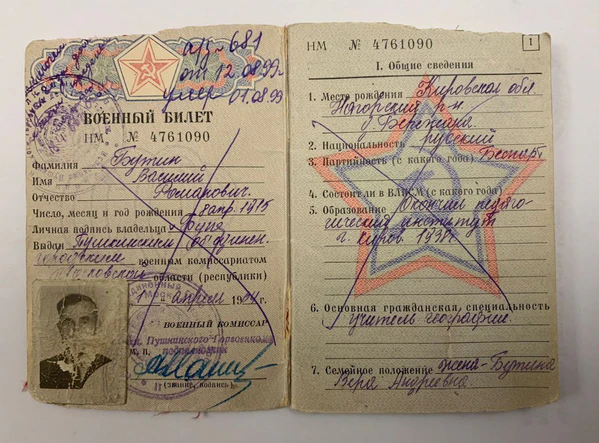 ар-681
от 12.08.99г
умер 01.08.99
ВОЕННЫЙ БИЛЕТ
НМ № 4761090
Фамилия Бутин
Имя Василий
Отчество Романович.
Число, месяц и год рождения апр. 1915
Личная подпись владельца
Выдан Пушкинским объединен.
городским военным комиссариатом
Московской области (республики)
апреля 19 г.
ВОЕННЫЙ КОМИССАР
Пушкинского Горвоенкомата
подполковник
М. П.
(звание, подпись)
НМ № 4761090
1
I. Общие сведения
1. Место рождения Кировская обл.
Нагорский р-н
д. Бережана
2. Национальность русский
3. Партийность (с какого года) Беспарт
4. Состоит ли в ВЛКСМ (с какого года)
5. Образование Окончил педаго-
гический институт
г. Киров 1938г
6. Основная гражданская специальность
учитель географии.
7. Семейное положение жена-Бутина
Вера Андреевна